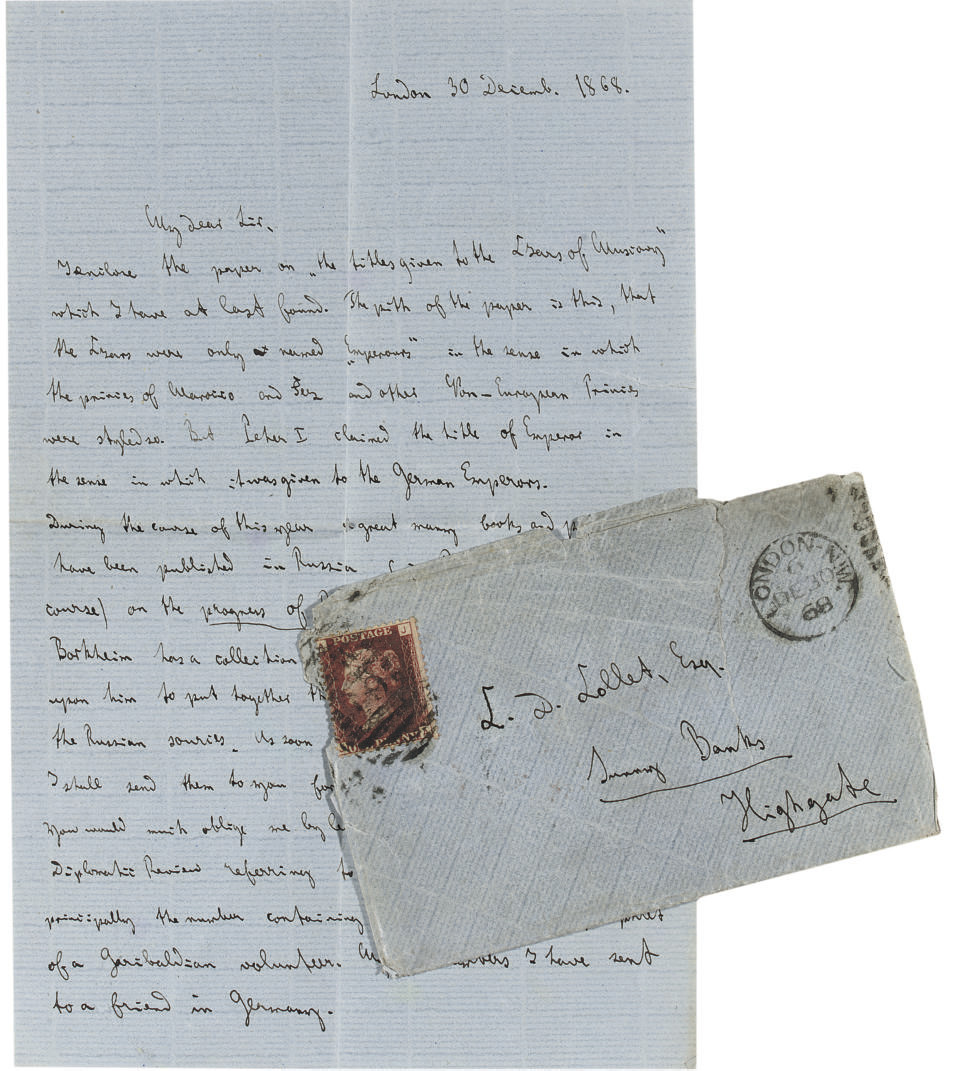 London 30 Decemb. 1868.
My dear Sir,
I enclose the paper on „the titles given to the Czars of Muscovy"
which I have at last found. The pith of the paper is this, that
the Czars were only named „Emperours" in the sense in which
the princes of Marocco and Fez and other Non-European Princes
were styled so. But Peter I claimed the title of Emperor in
the sense in which it was given to the German Emperors.
During the course of this year a great many books and p
have been published in Russia
course) on the progress of
Borkheim has a collection
upon him to put together th
the Russian sources. As soon
I shall send them to you for
You would much oblige me by le
Diplomatic Review referring to
principally the number containing
of a Garibaldian volunteer. I have sent
to a friend in Germany.
POSTAGE
J
LONDON-N.W.
DE 30
68
C. D. Collet, Esq.
Sunny Banks
Highgate